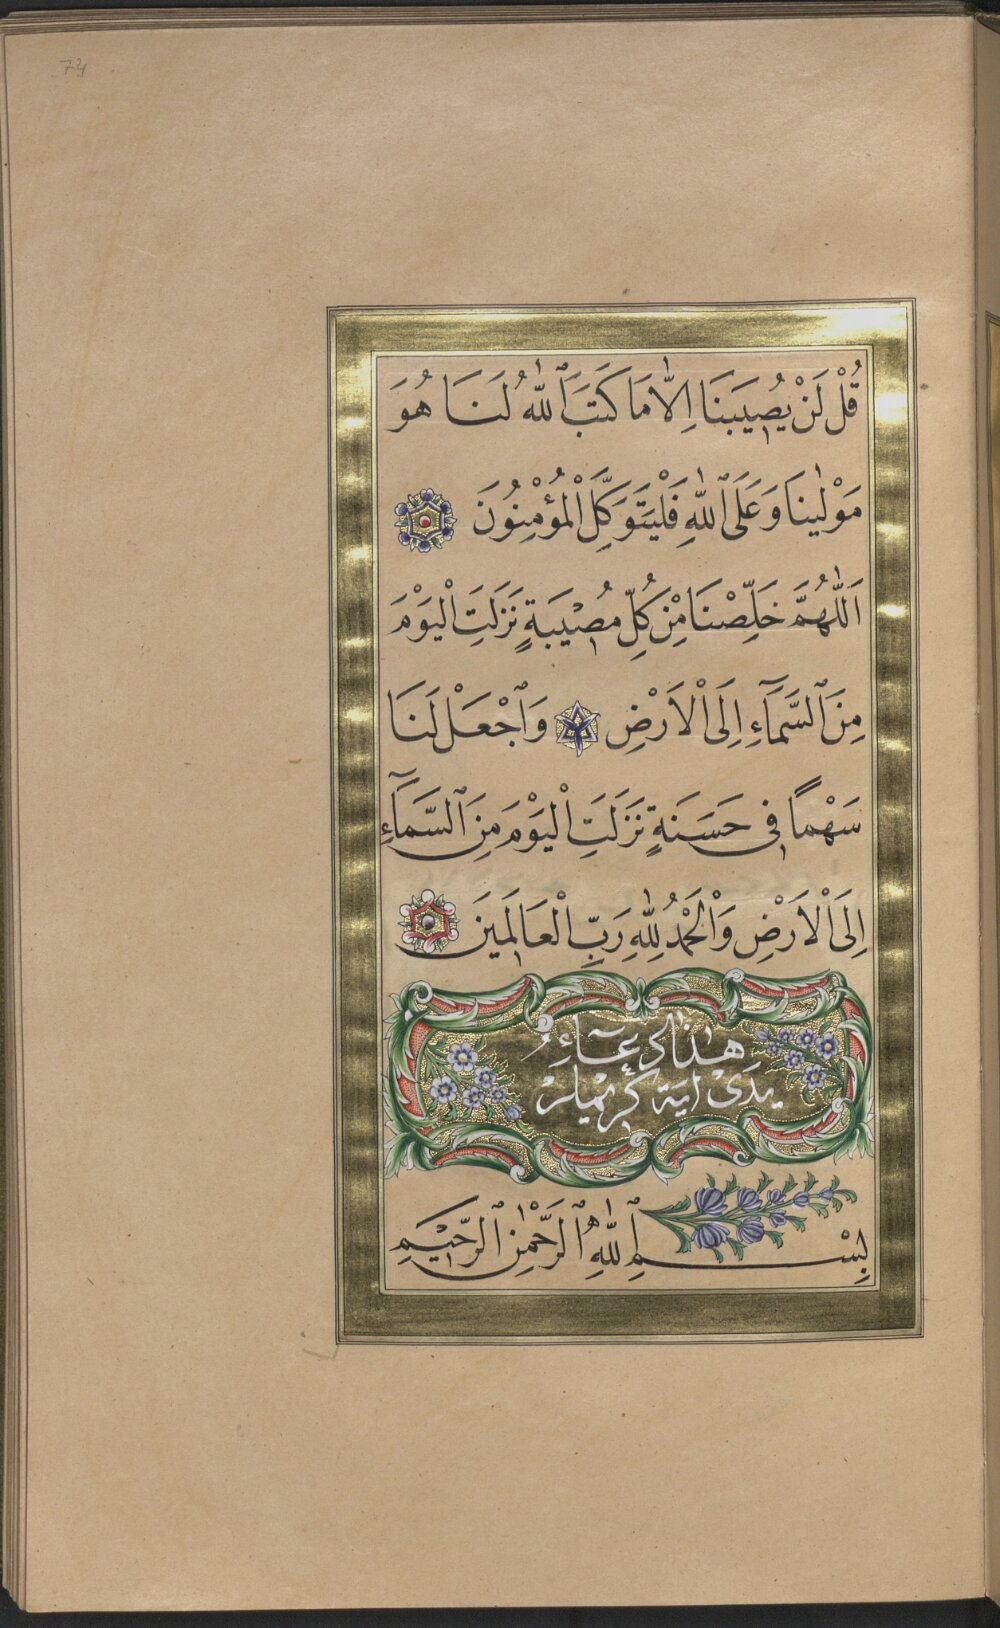 74
قُلْ لَنْ يُصِيبَنَا اِلَّا مَا كَتَبَ ٱللّٰهُ لَنَا هُوَ
مَوْلٰينَا وَعَلَى ٱللّٰهِ فَلْيَتَوَكَّلِ الْمُؤْمِنُونَ
اَللّٰهُمَّ خَلِّصْنَا مِنْ كُلِّ مُصِيْبَةٍ نَزَلَتِ الْيَوْمَ
مِنَ ٱلسَّمَآءِ اِلَى الْاَرْضِ وَٱجْعَلْ لَنَا
سَهْمًا فِى حَسَنَةٍ نَزَلَتِ الْيَوْمَ مِنَ ٱلسَّمَآءِ
اِلَى الْاَرْضِ وَالْحَمْدُ لِلّٰهِ رَبِّ الْعَالَمِينَ
هٰذَا الدُّعَآءِ
يَدَى اٰيَة كَرِيمَه لَرْ
بِسْمِ ٱللّٰهِ ٱلرَّحْمٰنِ ٱلرَّحِيْمِ